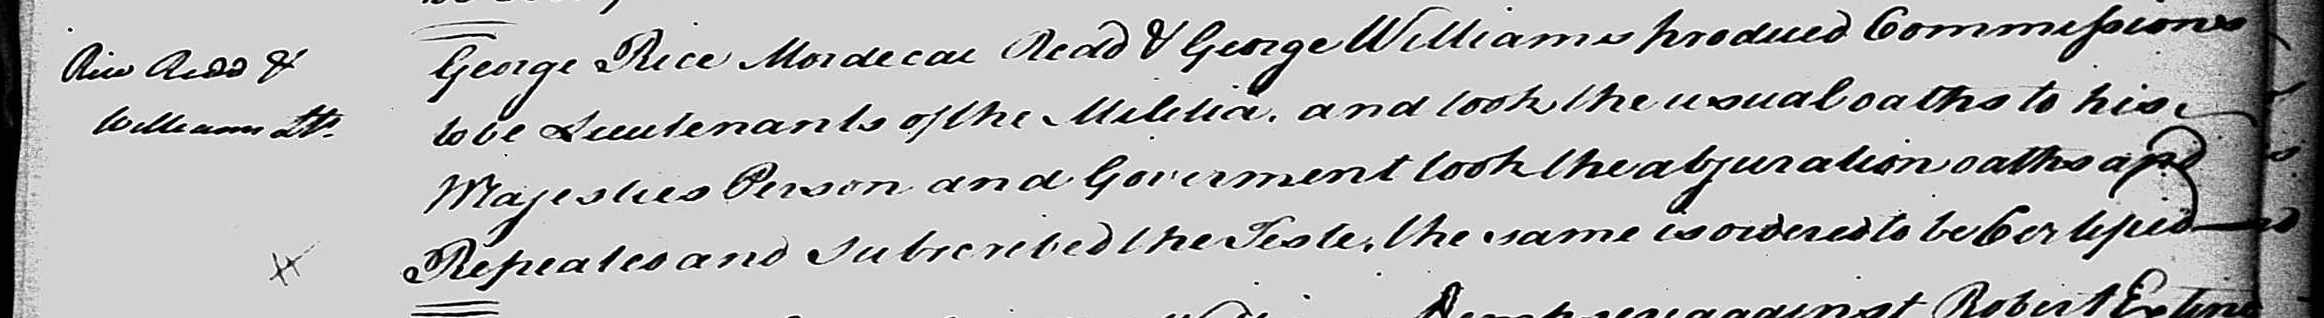 Rice Redd &
Williams Lts.
George Rice Mordecai Redd & George Williams produced Commissions
to be Lieutenants of the Militia. and took the usual oaths to his
Majesties Person and Goverment took the abjuration oaths and
Repeated and Subscribed the Teste, the same is ordered to be Certified
against Robert